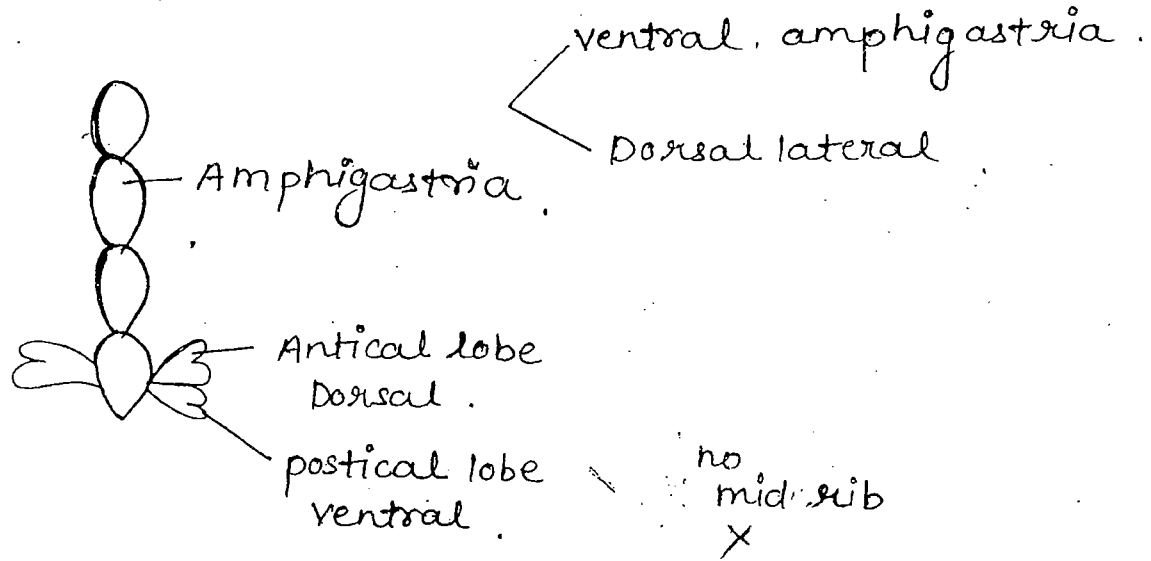 ventral. amphigastria.
Dorsal lateral
Amphigastria.
Antical lobe
Dorsal.
postical lobe
ventral.
no
mid rib
X